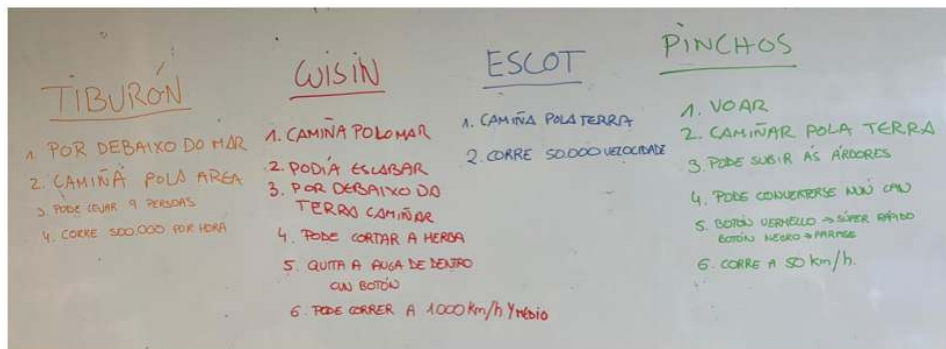 TIBURÓN
1. POR DEBAIXO DO MAR
2. CAMIÑA POLA AREA
3. PODE LEVAR 9 PERSOAS
4. CORRE 500.000 POR HORA
WISIN
1. CAMIÑA POLO MAR
2. PODÍA ESCABAR
3. POR DEBAIXO DA
TERRA CAMIÑAR
4. PODE CORTAR A HERBA
5. QUITA A AUGA DE DENTRO
CUN BOTÓN
6. PODE CORRER A 1000 Km/h Y MEDIO
ESCOT
1. CAMIÑA POLA TERRA
2. CORRE 50.000 VELOCIDADE
PINCHOS
1. VOAR
2. CAMIÑAR POLA TERRA
3. PODE SUBIR ÁS ÁRBORES
4. PODE CONVERTERSE NUN CAN
5. BOTÓN VERMELLO → SÚPER RÁPIDO
BOTÓN NEGRO → PARASE
6. CORRE A 50 km/h.